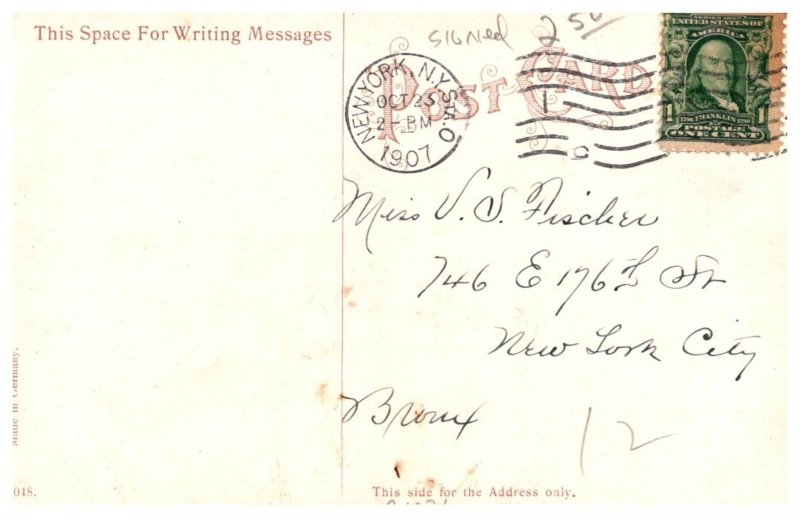 This Space For Writing Messages
SIGNED
2 50
POST CARD
NEW YORK, N.Y. STA. O
OCT 23
2 - PM
1907
SERIES 1902
UNITED STATES OF
AMERICA
1 1
1706 FRANKLIN 1790
POSTAGE
ONE CENT
Miss V. S. Fischer
746 E 176 St
New York City
Bronx
12
Made in Germany.
048.
This side for the Address only.